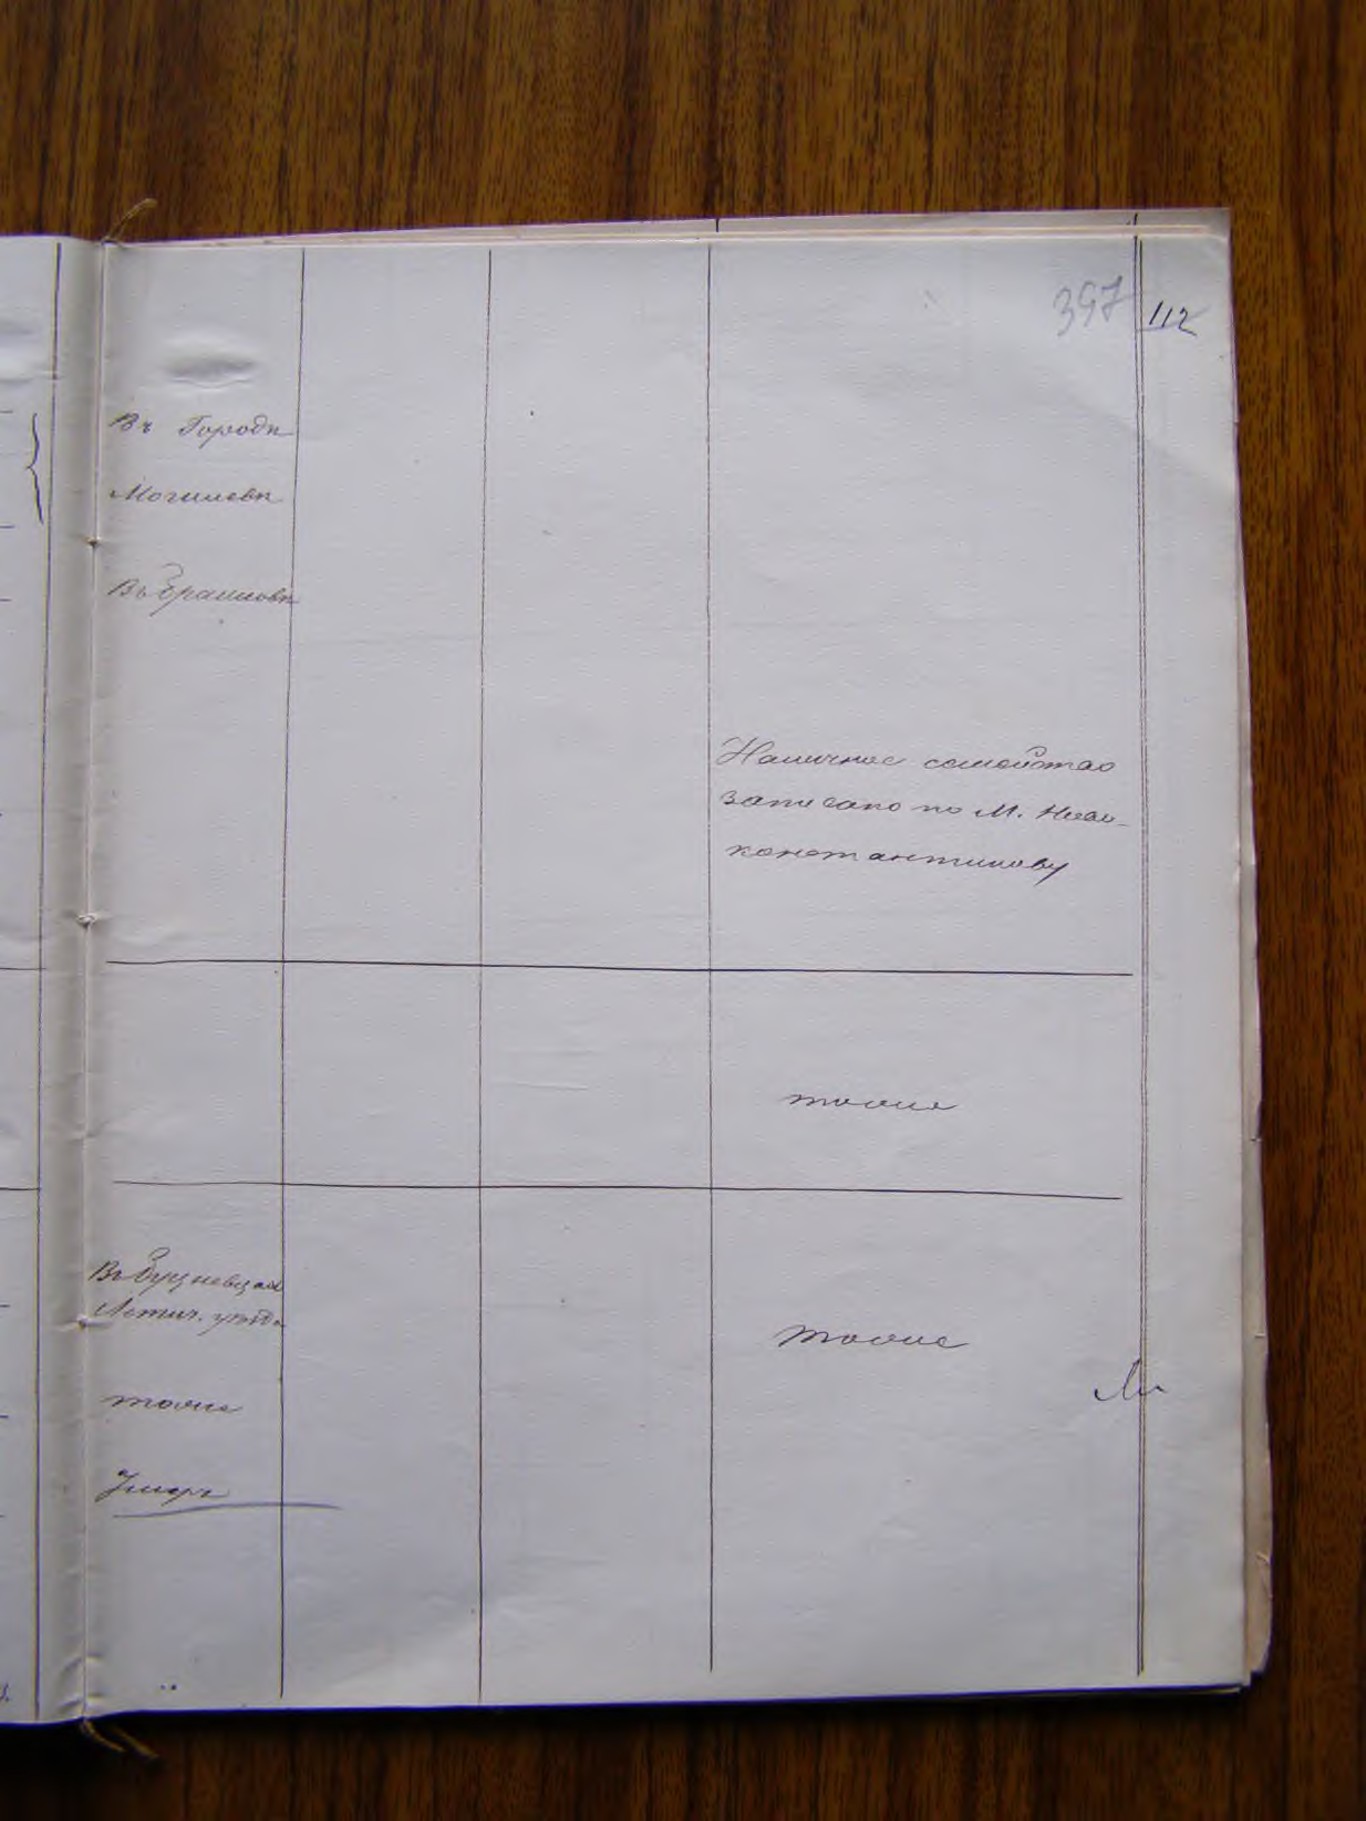 397 112
Въ Городѣ
Могилевѣ
Въ Ермашовкѣ
Наличное семейство
записано по М. Ново-
константинову
тоже
Летич. уѣзд.
тоже
тоже
Умеръ